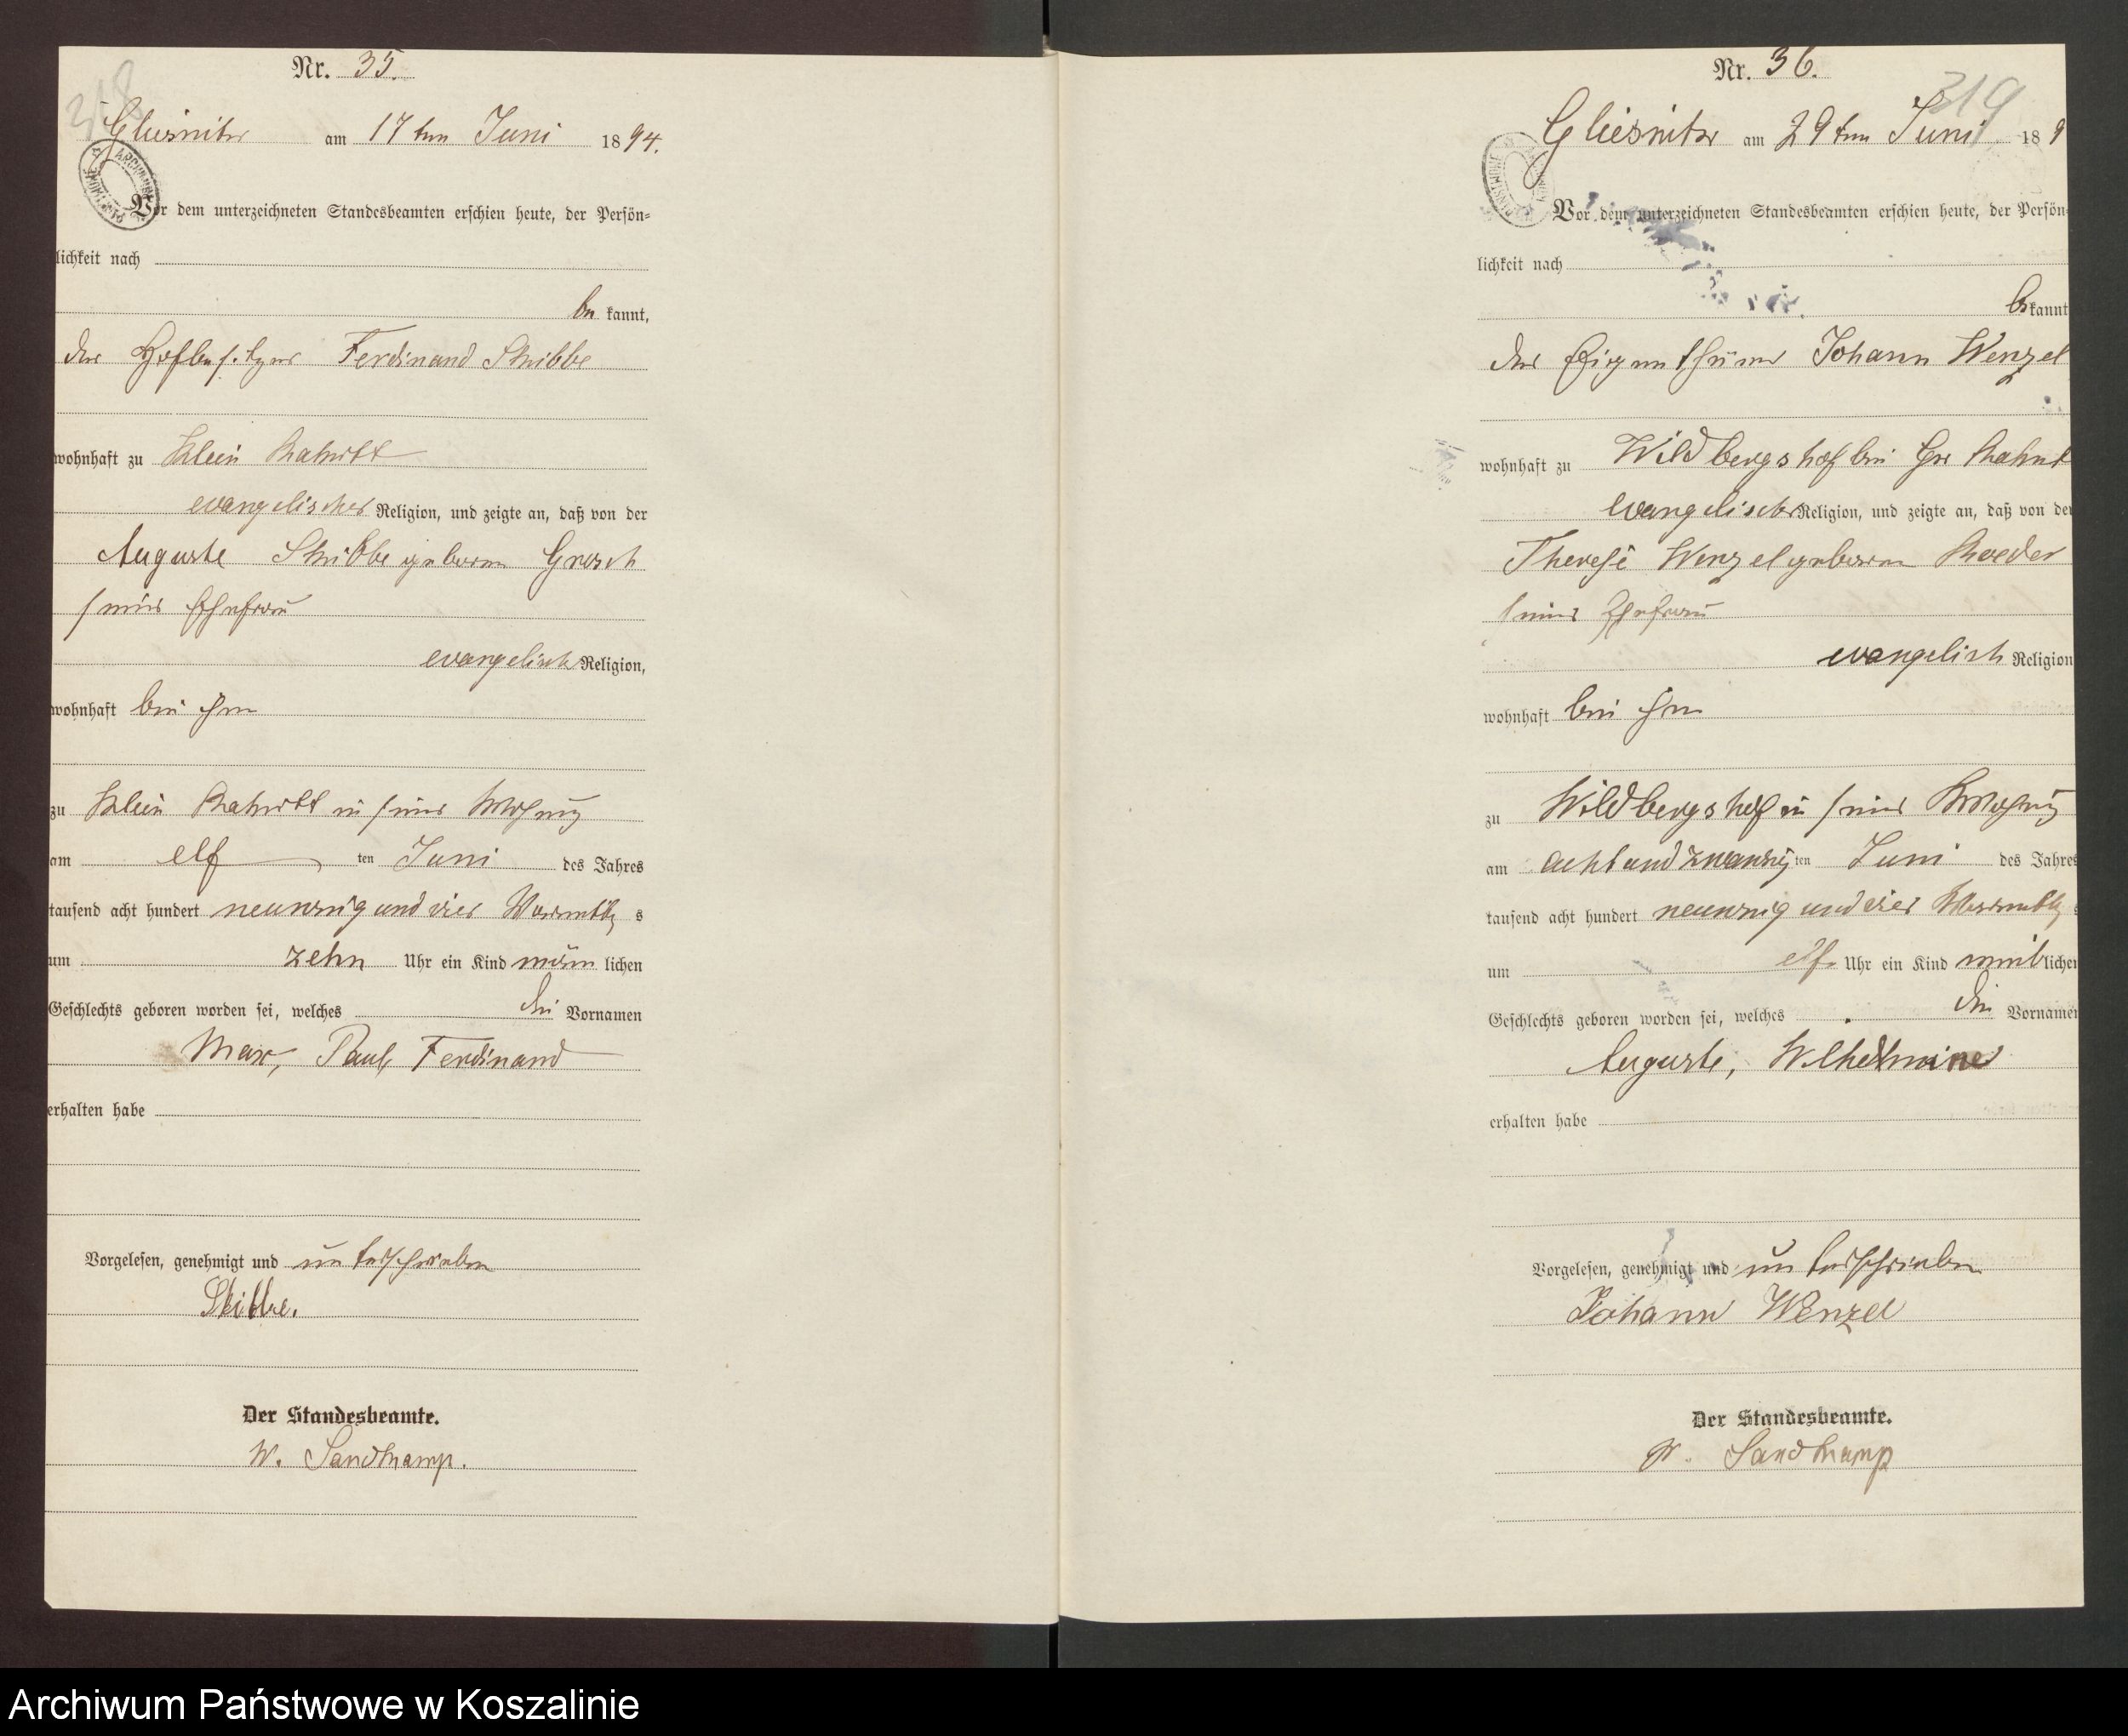 Nr. 35.
318
Gliesnitz am 17ten Juni 1894.
Vor dem unterzeichneten Standesbeamten erschien heute, der Persön=
lichkeit nach
be kannt,
der Hofbesitzer Ferdinand Skibbe
wohnhaft zu Klein Rakitt
evangelischer Religion, und zeigte an, daß von der
Auguste Skibbe geboren Grosch
seiner Ehefrau
evangelisch Religion,
wohnhaft bei ihm
zu Klein Rakitt in seiner Wohnung
am elf ten Juni des Jahres
tausend acht hundert neunzig und vier Vormittags
um zehn Uhr ein Kind männ lichen
Geschlechts geboren worden sei, welches die Vornamen
Max, Paul, Ferdinand
erhalten habe
Vorgelesen, genehmigt und unterschrieben
Skibbe.
Der Standesbeamte.
W. Sandkamp.
Nr. 36.
319
Gliesnitz am 29ten Juni 189
Vor dem unterzeichneten Standesbeamten erschien heute, der Persön
lichkeit nach
be kannt
der Eigenthümer Johann Wenzel
wohnhaft zu Wildbergshof bei Gr
evangelischer Religion, und zeigte an, daß von der
Therese Wenzel geboren Roeder
seiner Ehefrau
evangelisch Religion
wohnhaft bei ihm
zu Wildbergshof in seiner Wohnung
am acht und zwanzig ten Juni des Jahres
tausend acht hundert neunzig und vier Vormittags
um elf Uhr ein Kind weib lichen
Geschlechts geboren worden sei, welches die Vornamen
Auguste, Wilhelmine
erhalten habe
Vorgelesen, genehmigt und unterschrieben
Johann Wenzel
Der Standesbeamte.
W. Sandkamp
Archiwum Państwowe w Koszalinie